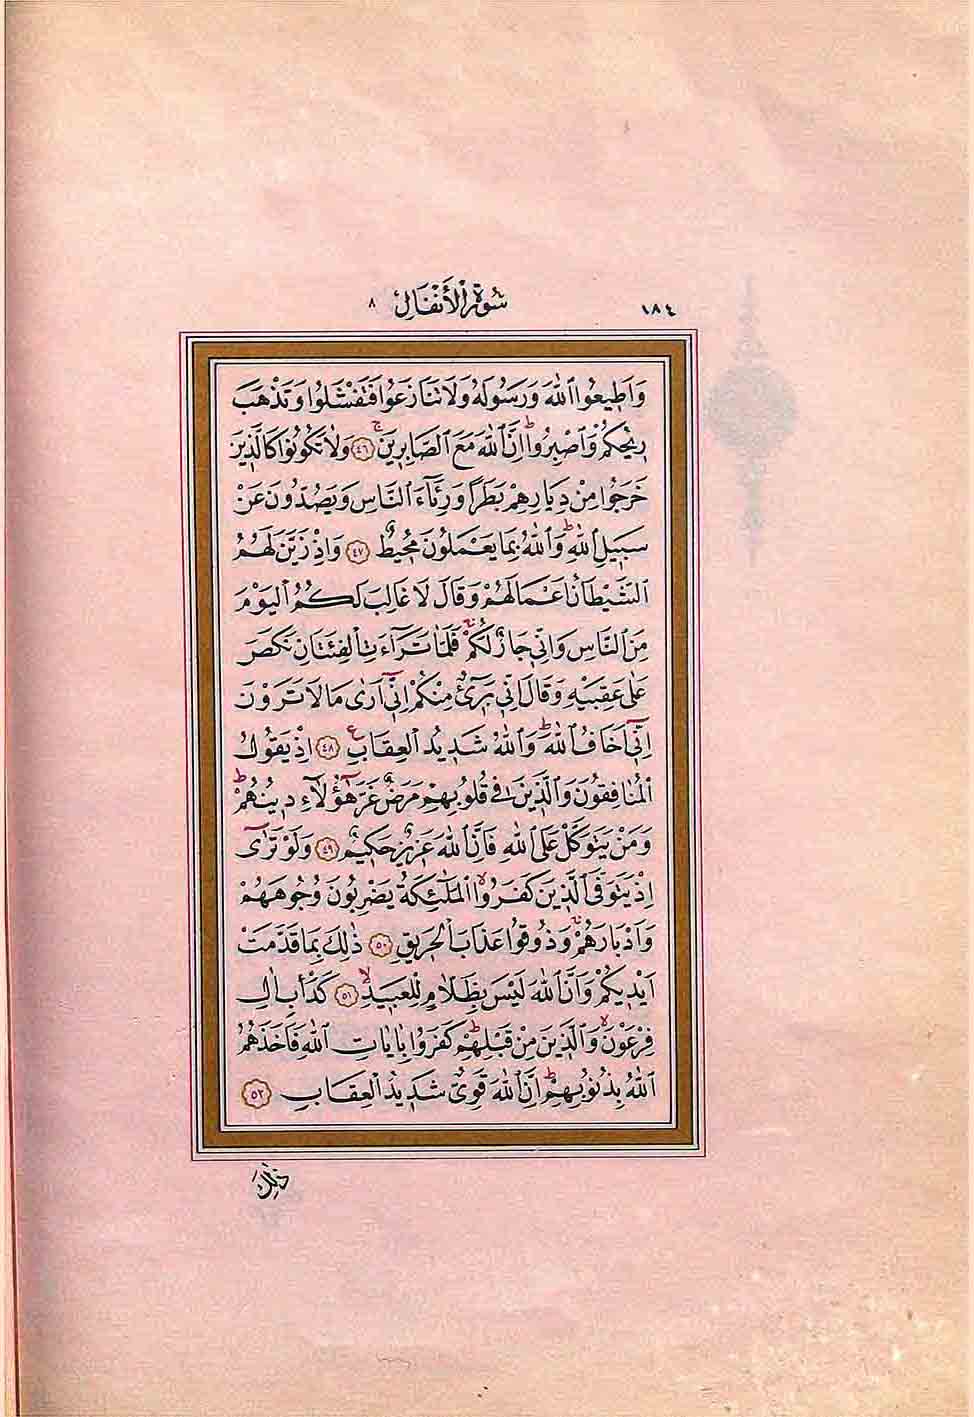 ١٨٤ سُورَةُ الْأَنْفَالِ ٨
وَاَطِيعُوا اللّٰهَ وَرَسُولَهُ وَلَا تَنَازَعُوا فَتَفْشَلُوا وَتَذْهَبَ
رِيحُكُمْ وَاصْبِرُواۜ اِنَّ اللّٰهَ مَعَ الصَّابِرِينَۚ ﴿٤٦﴾ وَلَا تَكُونُوا كَالَّذِينَ
خَرَجُوا مِنْ دِيَارِهِمْ بَطَرًا وَرِئَٓاءَ النَّاسِ وَيَصُدُّونَ عَنْ
سَبِيلِ اللّٰهِۜ وَاللّٰهُ بِمَا يَعْمَلُونَ مُحِيطٌ ﴿٤٧﴾ وَاِذْ زَيَّنَ لَهُمُ
الشَّيْطَانُ اَعْمَالَهُمْ وَقَالَ لَا غَالِبَ لَكُمُ الْيَوْمَ
مِنَ النَّاسِ وَاِنِّي جَارٌ لَكُمْۚ فَلَمَّا تَرَٓاءَتِ الْفِئَتَانِ نَكَصَ
عَلٰى عَقِبَيْهِ وَقَالَ اِنِّي بَرِٓيءٌ مِنْكُمْ اِنِّٓي اَرٰى مَا لَا تَرَوْنَ
اِنِّٓي اَخَافُ اللّٰهَۜ وَاللّٰهُ شَدِيدُ الْعِقَابِ۟ ﴿٤٨﴾ اِذْ يَقُولُ
الْمُنَافِقُونَ وَالَّذِينَ فِي قُلُوبِهِمْ مَرَضٌ غَرَّ هٰٓؤُ۬لَٓاءِ دِينُهُمْۜ
وَمَنْ يَتَوَكَّلْ عَلَى اللّٰهِ فَاِنَّ اللّٰهَ عَزِيزٌ حَكِيمٌ ﴿٤٩﴾ وَلَوْ تَرٰٓى
اِذْ يَتَوَفَّى الَّذِينَ كَفَرُواۙ الْمَلٰٓئِكَةُ يَضْرِبُونَ وُجُوهَهُمْ
وَاَدْبَارَهُمْۚ وَذُوقُوا عَذَابَ الْحَرِيقِ ﴿٥٠﴾ ذٰلِكَ بِمَا قَدَّمَتْ
اَيْدِيكُمْ وَاَنَّ اللّٰهَ لَيْسَ بِظَلَّامٍ لِلْعَبِيدِۙ ﴿٥١﴾ كَدَأْبِ اٰلِ
فِرْعَوْنَۙ وَالَّذِينَ مِنْ قَبْلِهِمْۜ كَفَرُوا بِاٰيَاتِ اللّٰهِ فَاَخَذَهُمُ
اللّٰهُ بِذُنُوبِهِمْۜ اِنَّ اللّٰهَ قَوِيٌّ شَدِيدُ الْعِقَابِ ﴿٥٢﴾
ذٰلِكَ